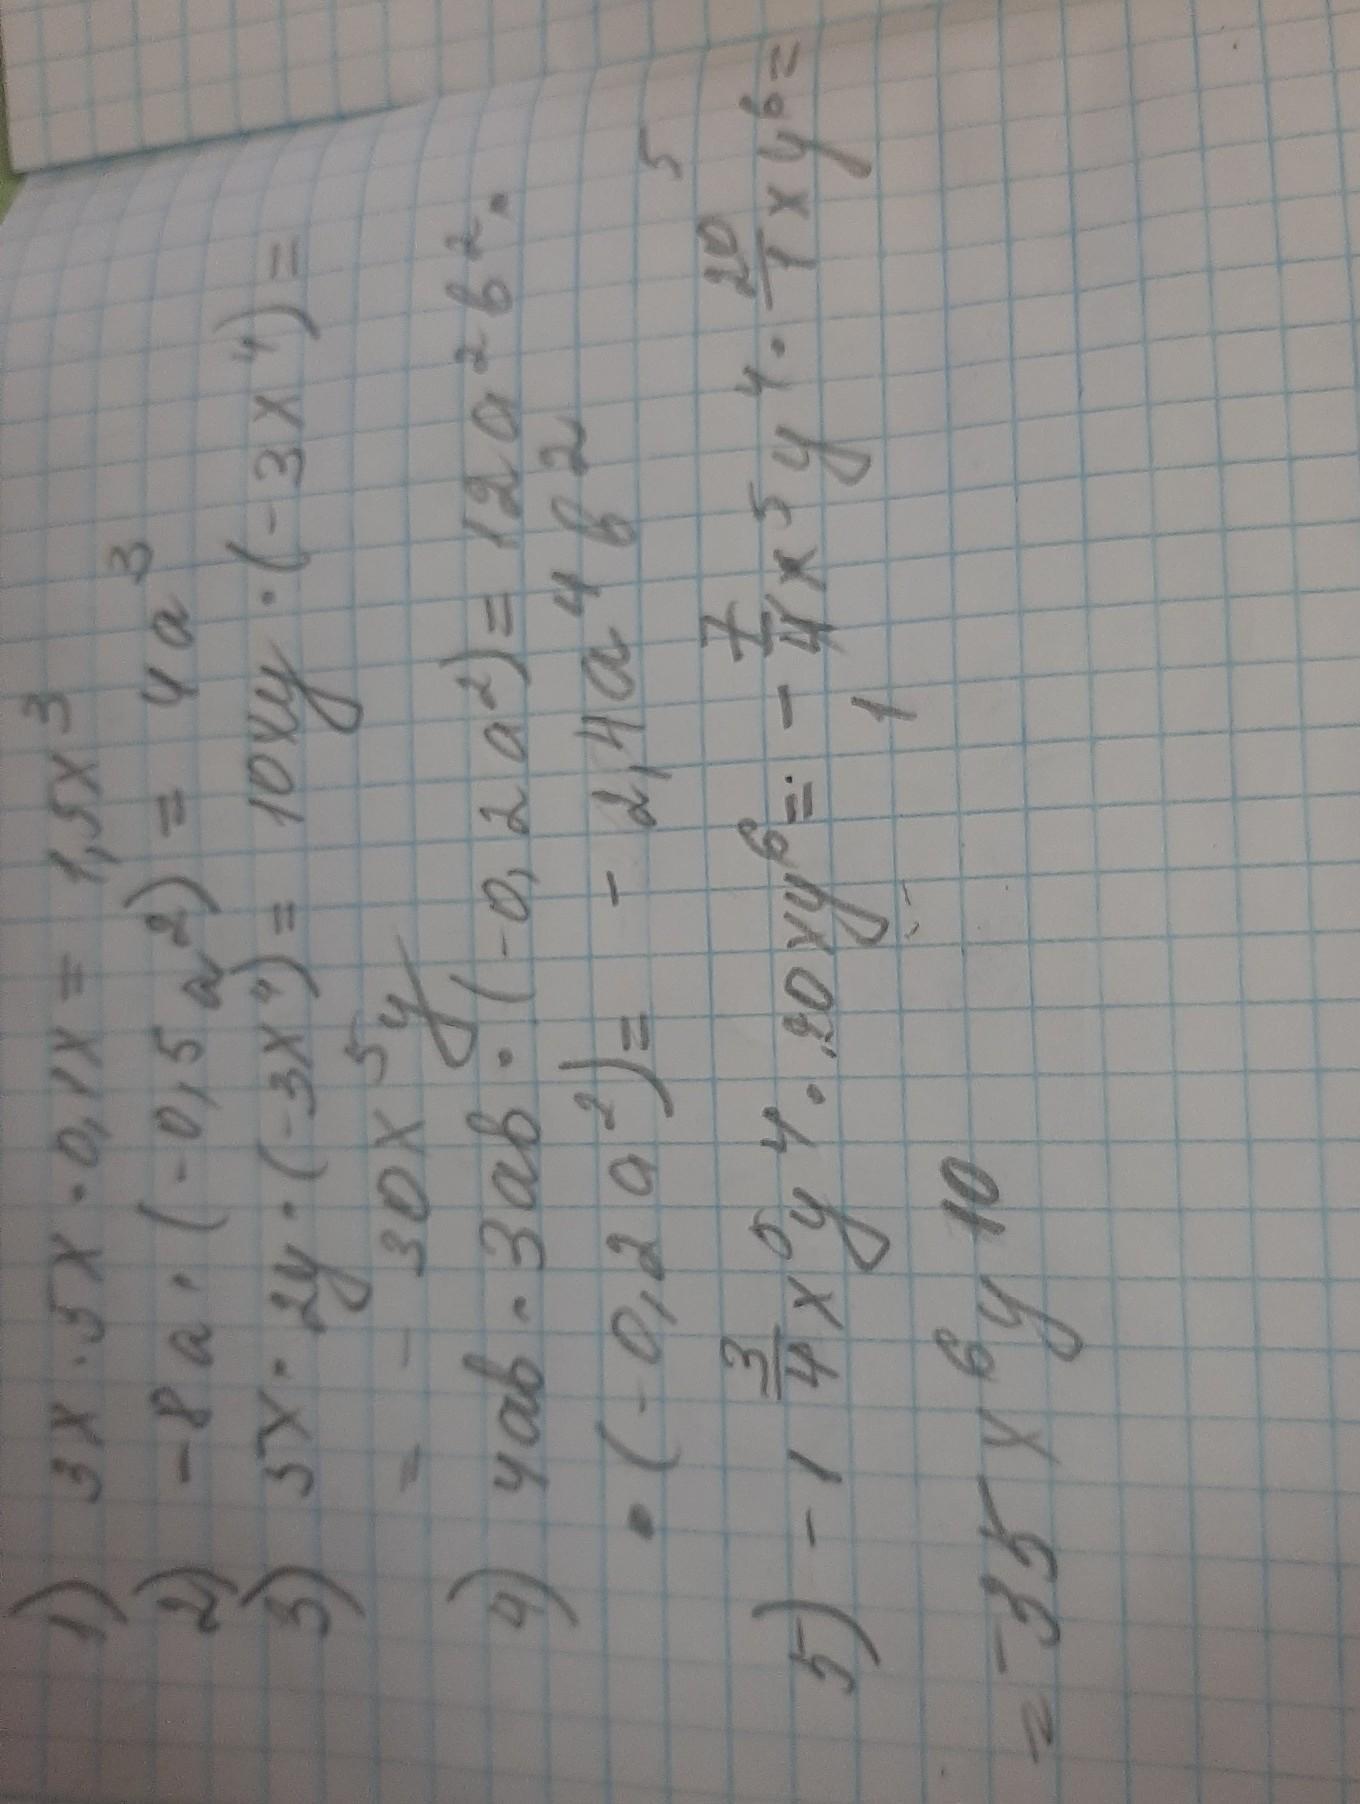 1) 3x · 5x · 0,1x = 1,5x³
2) -8a · (-0,5a²) = 4a³
3) 5x · 2y · (-3x⁴) = 10xy · (-3x⁴) =
= - 30x⁵y
4) 4ab · 3ab · (-0,2a²) = 12a²b² ·
· (-0,2a²) = - 2,4a⁴b²
5) -1 3/4 x⁵y⁴ · 20xy⁶ = - 7/4 1 x⁵y⁴ · 20/1 5 xy⁶ =
= -35x⁶y¹⁰